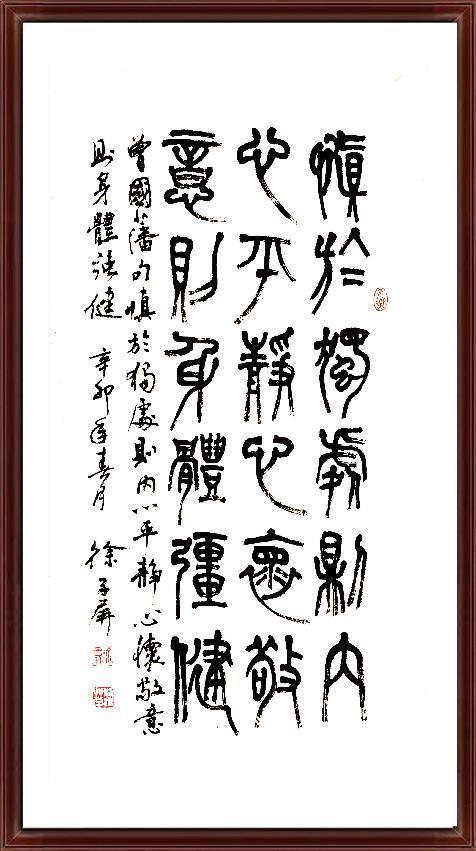 慎於獨處則內
心平靜心懷敬
意則身體彊健
曾國藩句慎於獨處則內心平靜心懷敬意
則身體强健 辛卯年春月 徐子屏